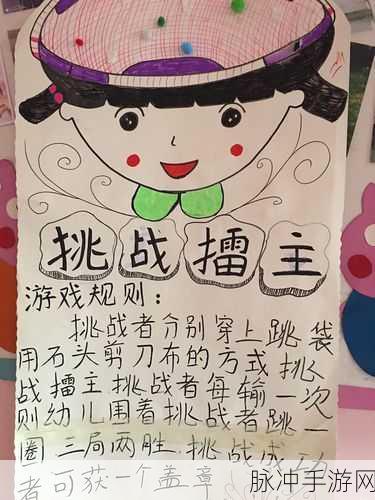 挑战擂主
游戏规则：
挑战者分别穿上跳袋
用石头剪刀布的方式挑
战擂主.挑战者每输一次
则幼儿围着挑战者跳一
圈.三局两胜.挑战成功
者可获一个盖章
脉冲手游网